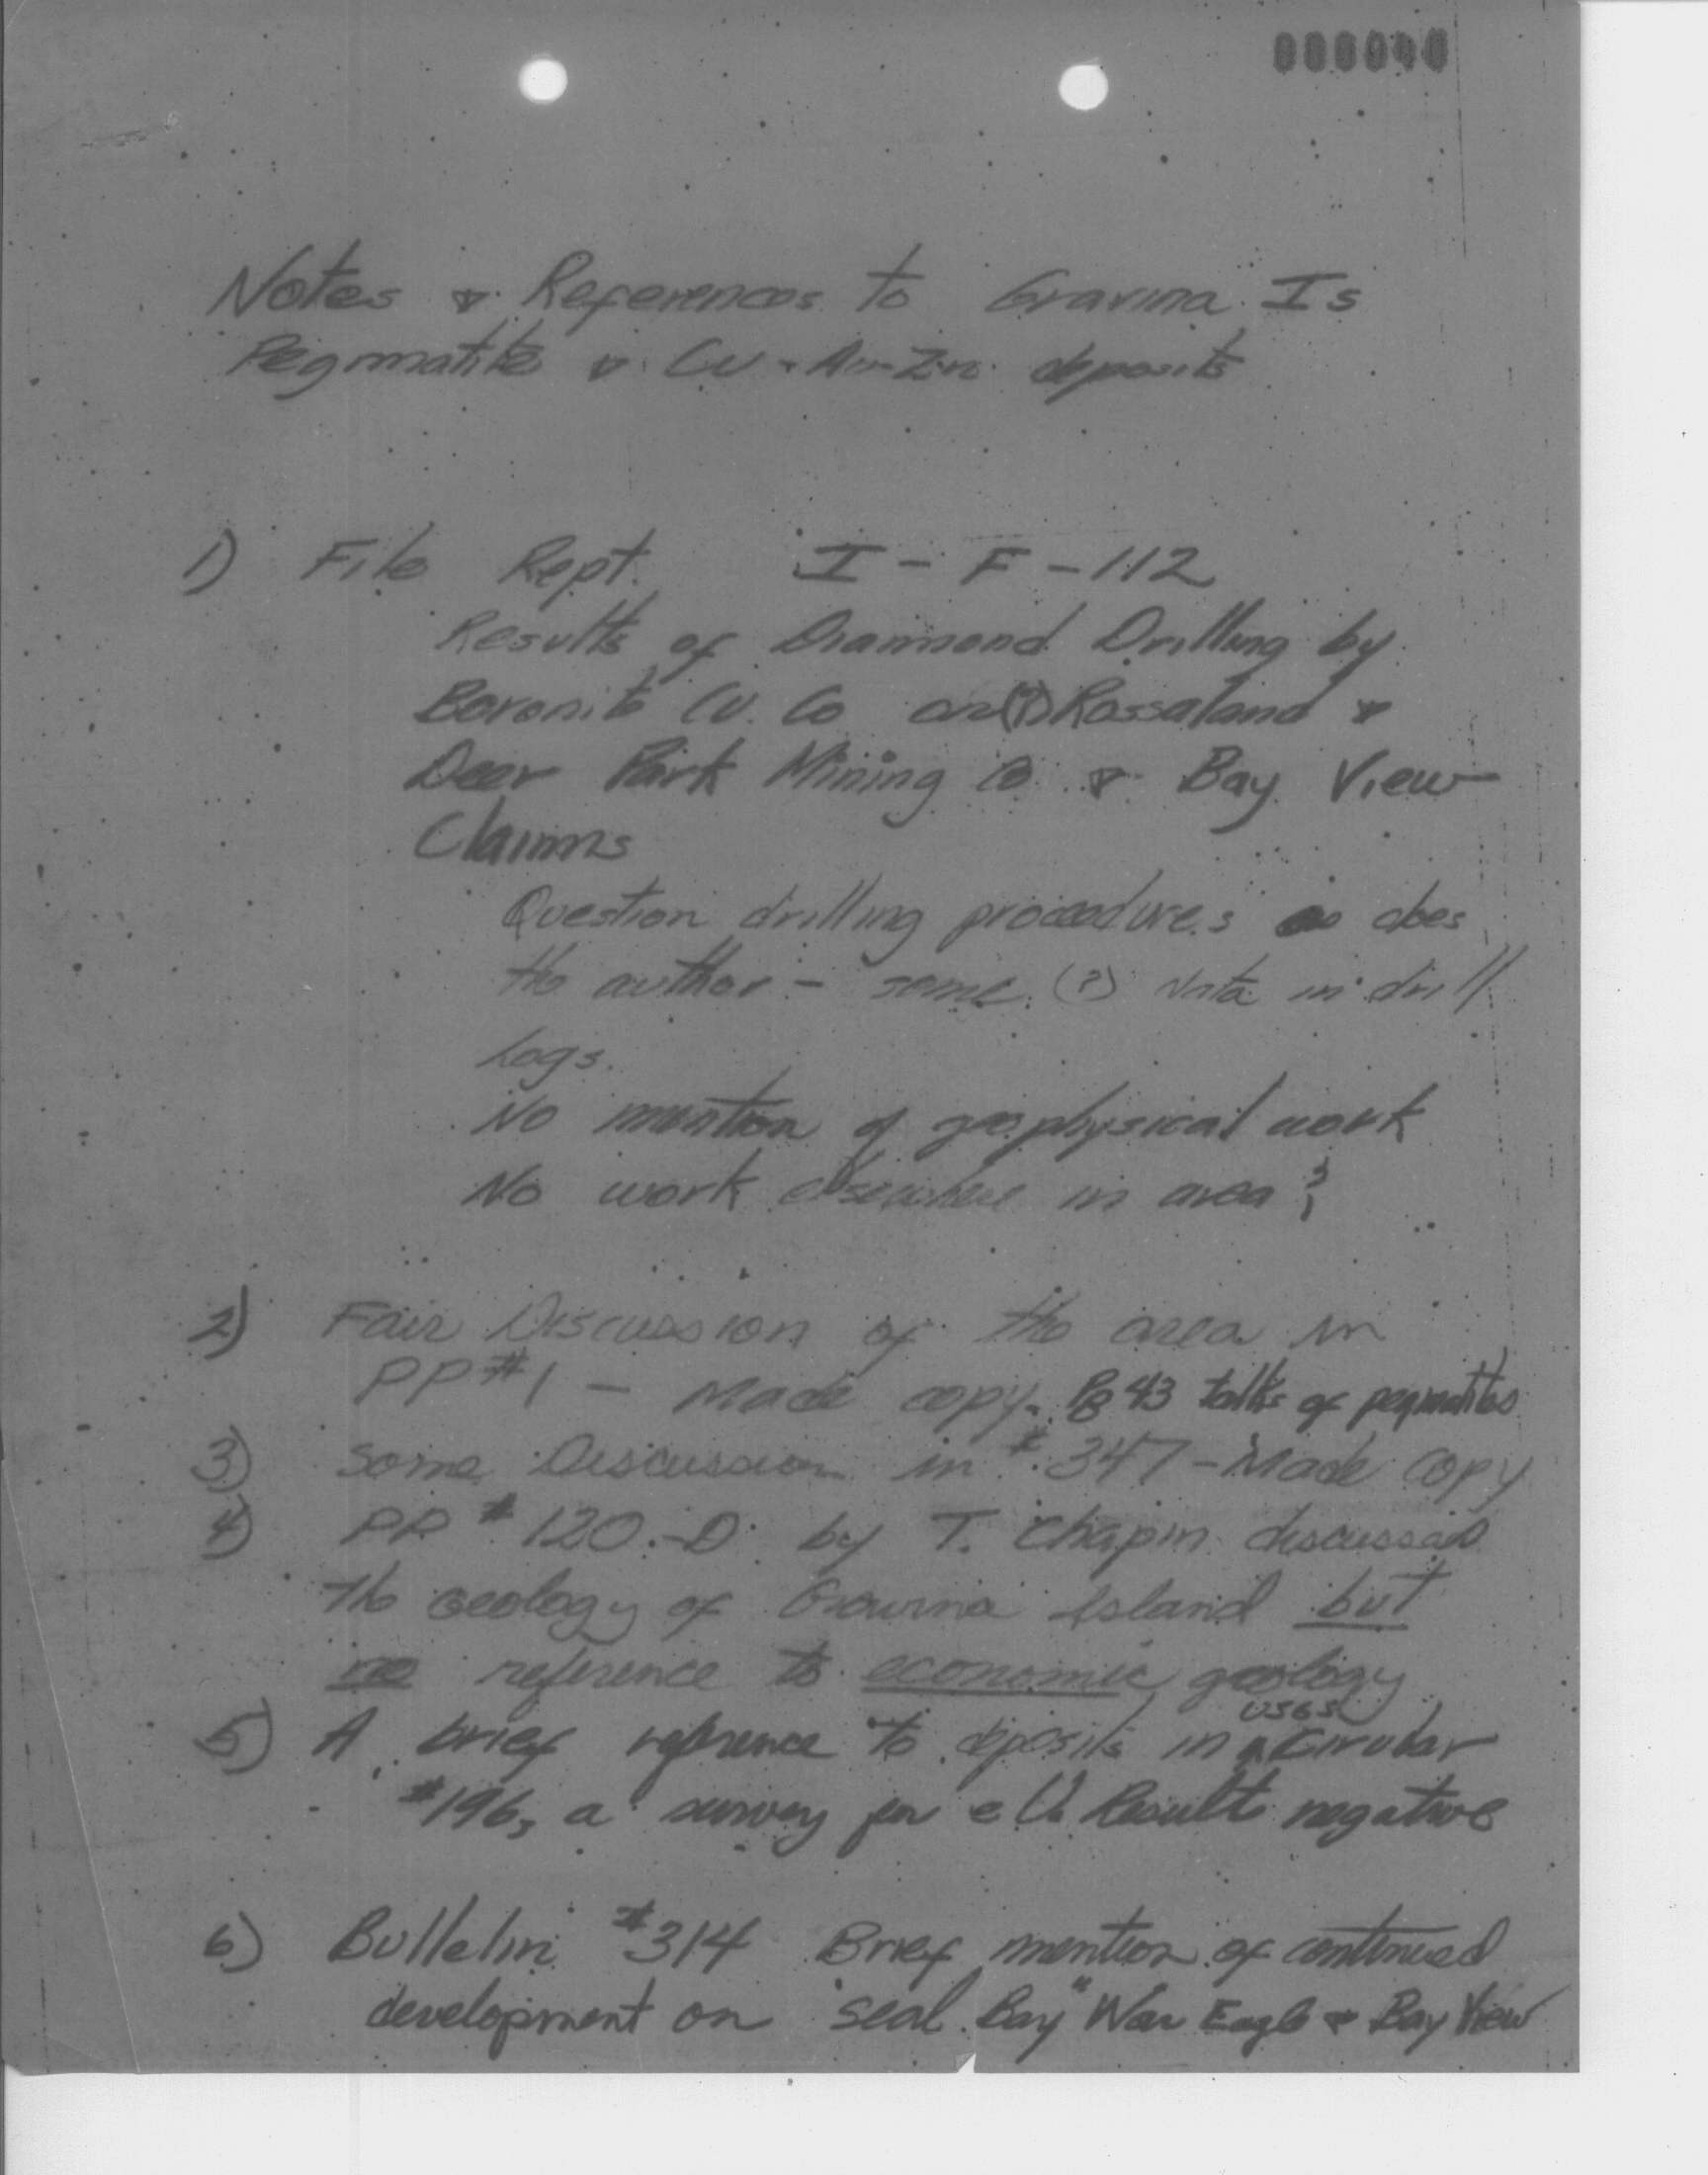 Notes & References to Gravina Is
Pegmatite & Cu - Au-Zn deposits
1) File Rept. I - F - 112
Results of Diamond Drilling by
Boronite Cu. Co on (?) Rossaland &
Deer Park Mining Co & Bay View
Claims
Question drilling procedures as does
the author - some (?) data in drill
logs.
No mention of geophysical work
No work elsewhere in area ?
2) Fair Discussion of the area in
PP #1 - Made copy. Pg 43 talks of pegmatites
3) Some Discussion in # 347 - Made copy
4) PP # 120-D by T. Chapin discusses
the geology of Gravina Island but
no reference to economic geology
USGS
5) A brief reference to deposits in Circular
#196, a survey for eU. Results negative
6) Bulletin #314 Brief mention of continued
development on "Seal Bay" War Eagle & Bay View